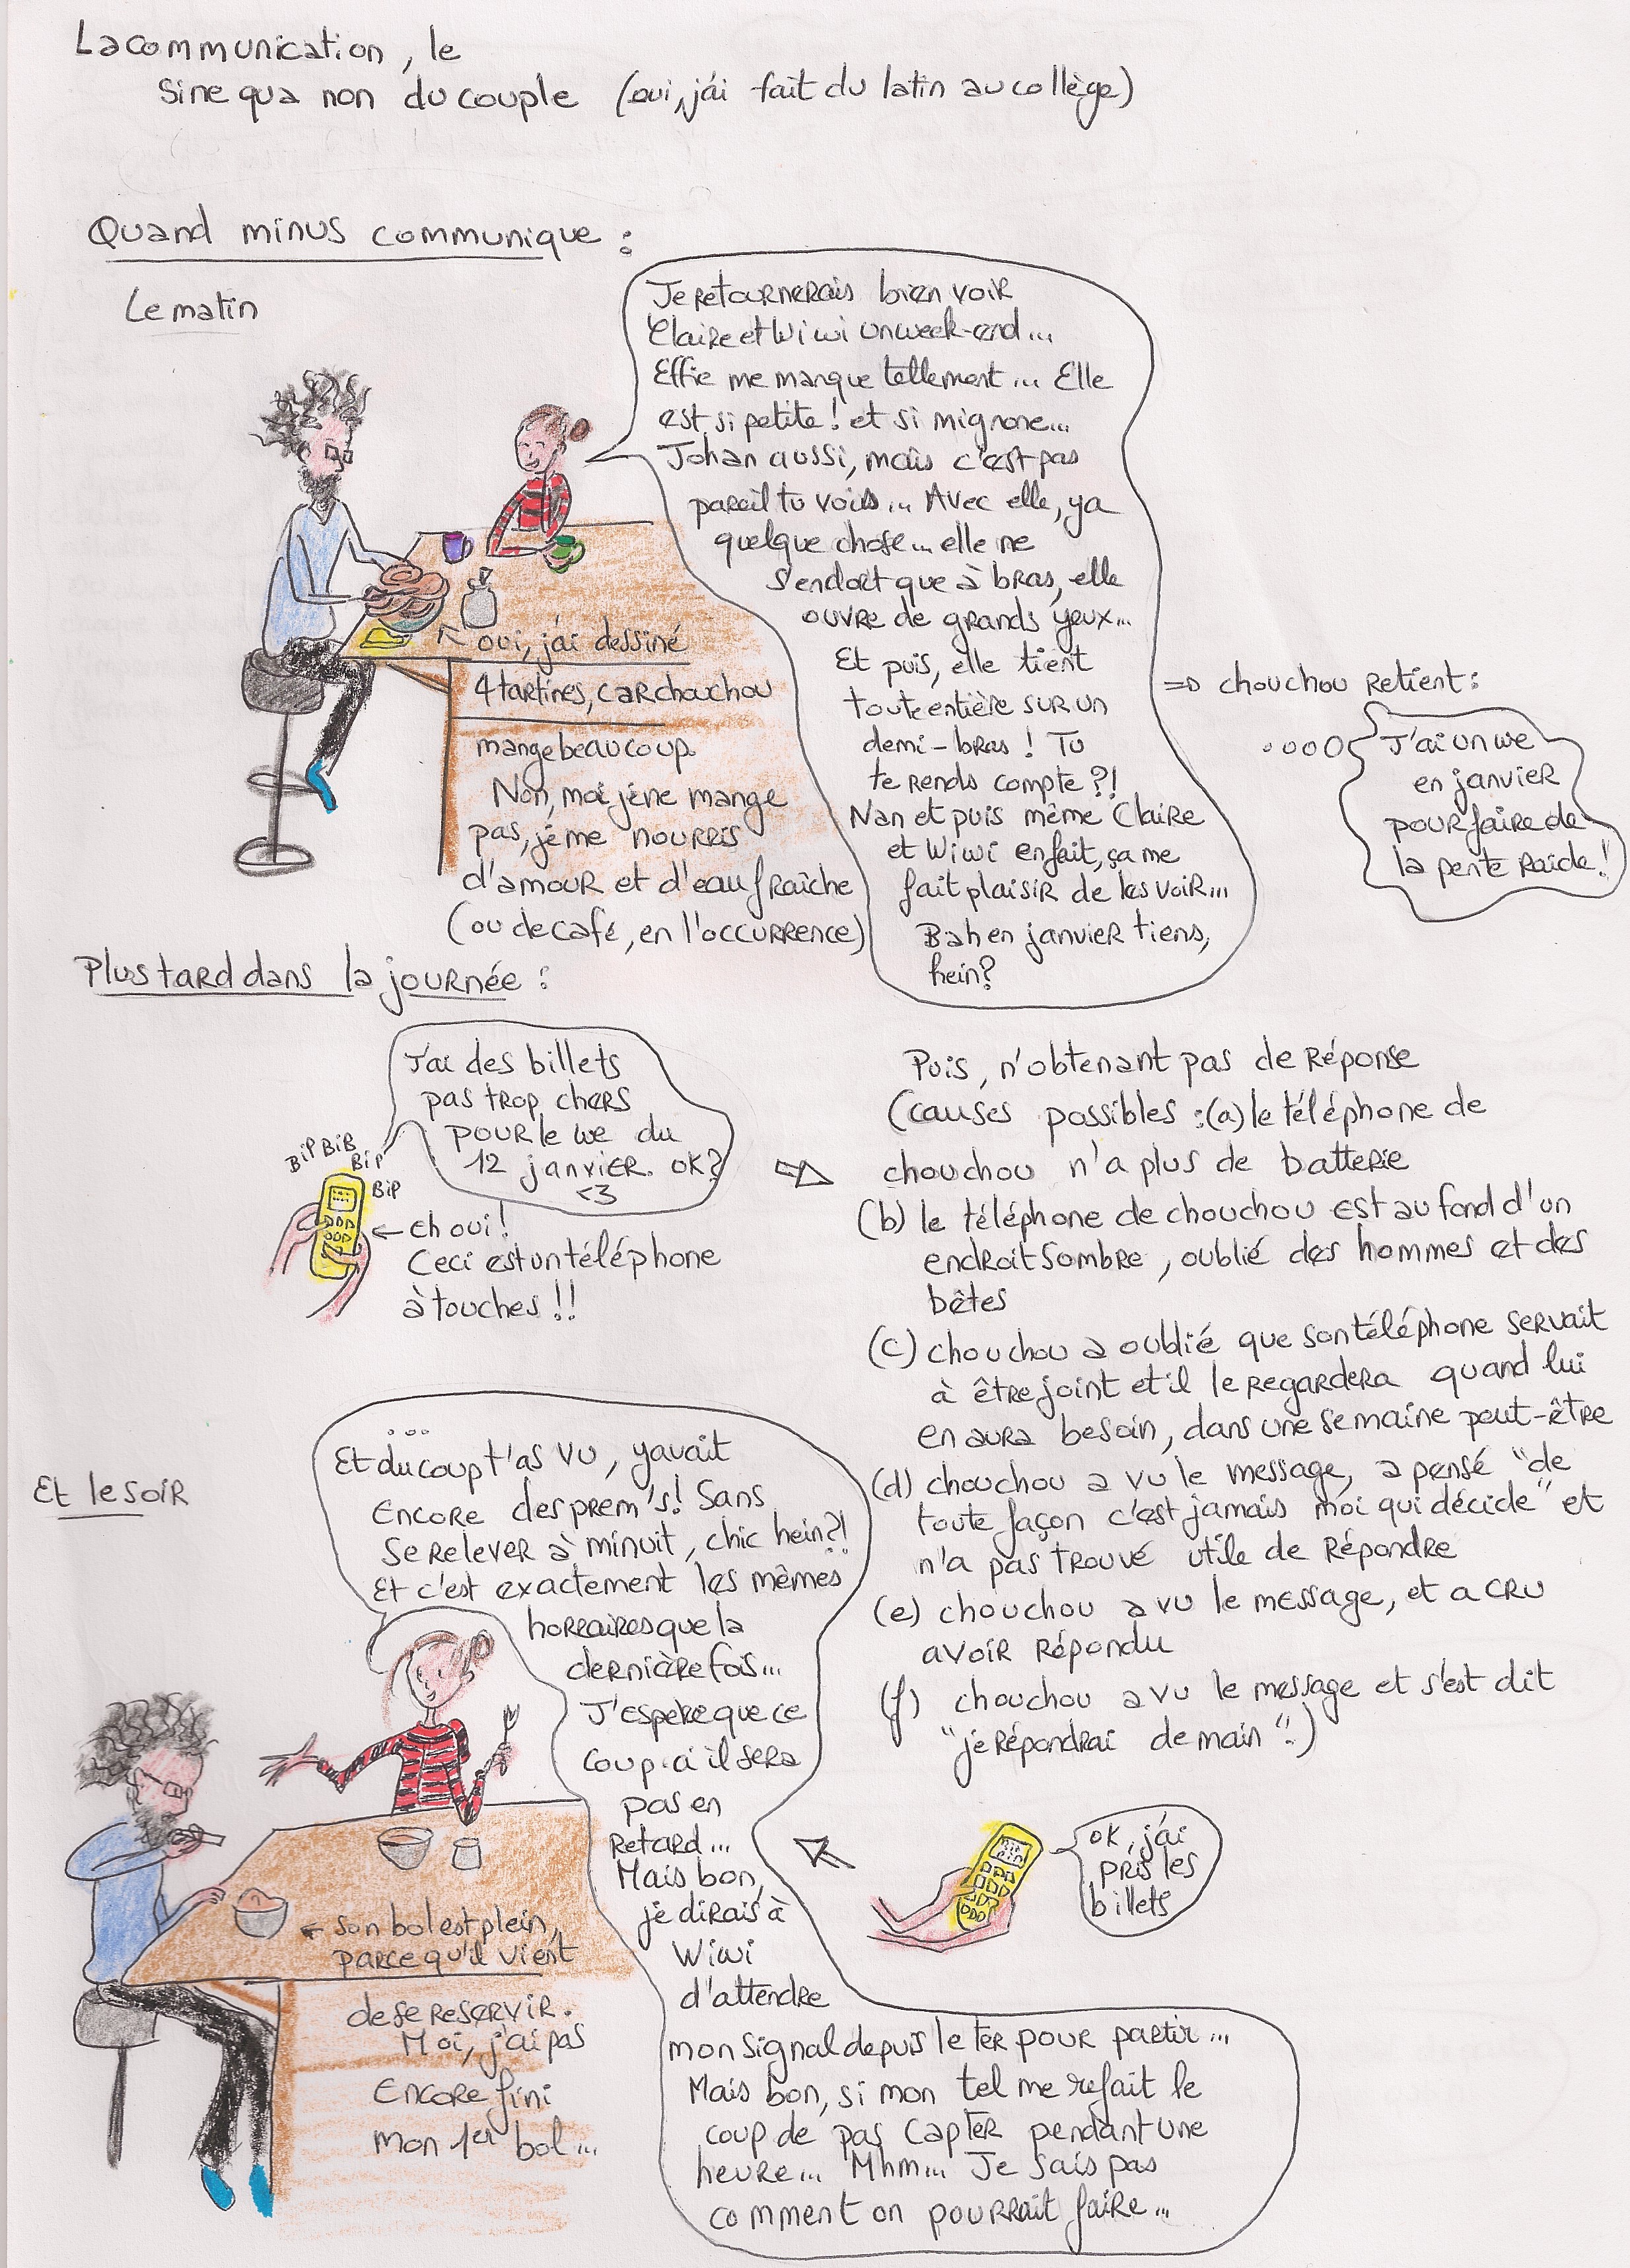 La communication, le
sine qua non du couple (oui, j'ai fait du latin au collège)
Quand minus communique :
Le matin
Je retournerais bien voir
Claire et Wiwi un week-end...
Effie me manque tellement... Elle
est si petite ! et si mignone...
Johan aussi, mais c'est pas
pareil tu vois... Avec elle, ya
quelque chose... elle ne
s'endort que à bras, elle
ouvre de grands yeux...
Et puis, elle tient
toute entière sur un
demi-bras ! Tu
te rends compte ?!
Nan et puis même Claire
et Wiwi en fait, ça me
fait plaisir de les voir...
Bah en janvier tiens,
hein?
oui, j'ai dessiné
4 tartines, car chouchou
mange beaucoup.
Non, moi je ne mange
pas, je me nourris
d'amour et d'eau fraîche
(ou de café, en l'occurrence)
=> chouchou retient :
J'ai un we
en janvier
pour faire de
la pente raide !
Plus tard dans la journée :
J'ai des billets
pas trop chers
pour le we du
12 janvier. OK?
<3
BiP BiB
BiP
BiP
← eh oui !
Ceci est un téléphone
à touches !!
Puis, n'obtenant pas de réponse
(causes possibles : (a) le téléphone de
chouchou n'a plus de batterie
(b) le téléphone de chouchou est au fond d'un
endroit sombre, oublié des hommes et des
bêtes
(c) chouchou a oublié que son téléphone servait
à être joint et il le regardera quand lui
en aura besoin, dans une semaine peut-être
(d) chouchou a vu le message, a pensé "de
toute façon c'est jamais moi qui décide" et
n'a pas trouvé utile de répondre
(e) chouchou a vu le message, et a cru
avoir répondu
(f) chouchou a vu le message et s'est dit
"je répondrai demain".)
OK, j'ai
pris les
billets
Et le soir
...
Et du coup t'as vu, yavait
encore des prem's! Sans
se relever à minuit, chic hein?!
Et c'est exactement les mêmes
horraires que la
dernière fois...
J'espere que ce
coup-ci il sera
pas en
retard...
Mais bon,
je dirais à
Wiwi
d'attendre
mon signal depuis le ter pour partir...
Mais bon, si mon tel me refait le
coup de pas capter pendant une
heure... Mhm... Je sais pas
comment on pourrait faire...
← son bol est plein,
parce qu'il vient
de se reservir.
Moi, j'ai pas
encore fini
mon 1er bol...